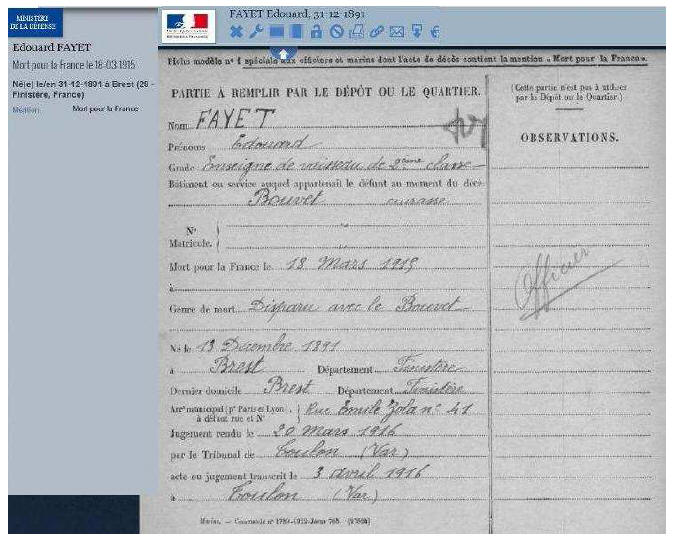 MINISTÈRE
DE LA DÉFENSE
Edouard FAYET
Mort pour la France le 18-03-1915
Né(e) le/en 31-12-1891 à Brest (29 -
Finistère, France)
Mention: Mort pour la France
FAYET Edouard, 31-12-1891
Fiche modèle n° 1 spéciale aux officiers et marins dont l'acte de décès contient la mention « Mort pour la France».
PARTIE A REMPLIR PAR LE DÉPÔT OU LE QUARTIER.
Nom FAYET
Prénoms Edouard
Grade Enseigne de vaisseau de 2ème classe
Bâtiment ou service auquel appartenait le défunt au moment du décès
Bouvet cuirassé
N°
Matricule.
Mort pour la France le 18 Mars 1915
à
Genre de mort Disparu avec le Bouvet
Né le 13 Décembre 1891
à Brest Département Finistère
Dernier domicile Brest Département Finistère
Arrt municipal (pr Paris et Lyon) à défaut rue et N° Rue Emile Zola n° 41
Jugement rendu le 20 Mars 1916
par le Tribunal de Toulon (Var)
acte ou jugement transcrit le 3 avril 1916
à Toulon (Var)
(Cette partie n'est pas à utiliser
par le Dépôt ou le Quartier.)
OBSERVATIONS.
Officier